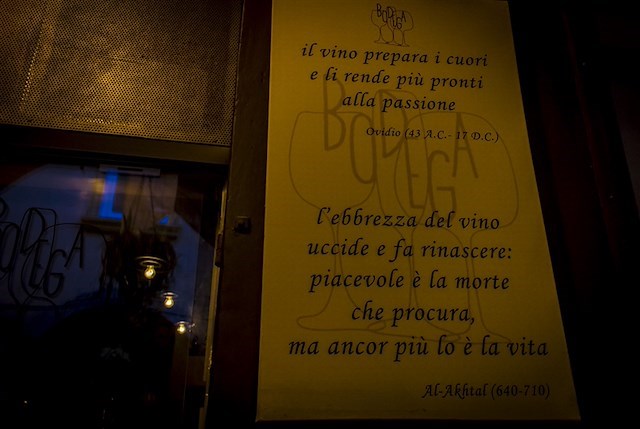 BODEGA
il vino prepara i cuori
e li rende più pronti
alla passione
Ovidio (43 A.C.- 17 D.C.)
BODEGA
l'ebbrezza del vino
uccide e fa rinascere:
piacevole è la morte
che procura,
ma ancor più lo è la vita
Al-Akhtal (640-710)
BODEGA